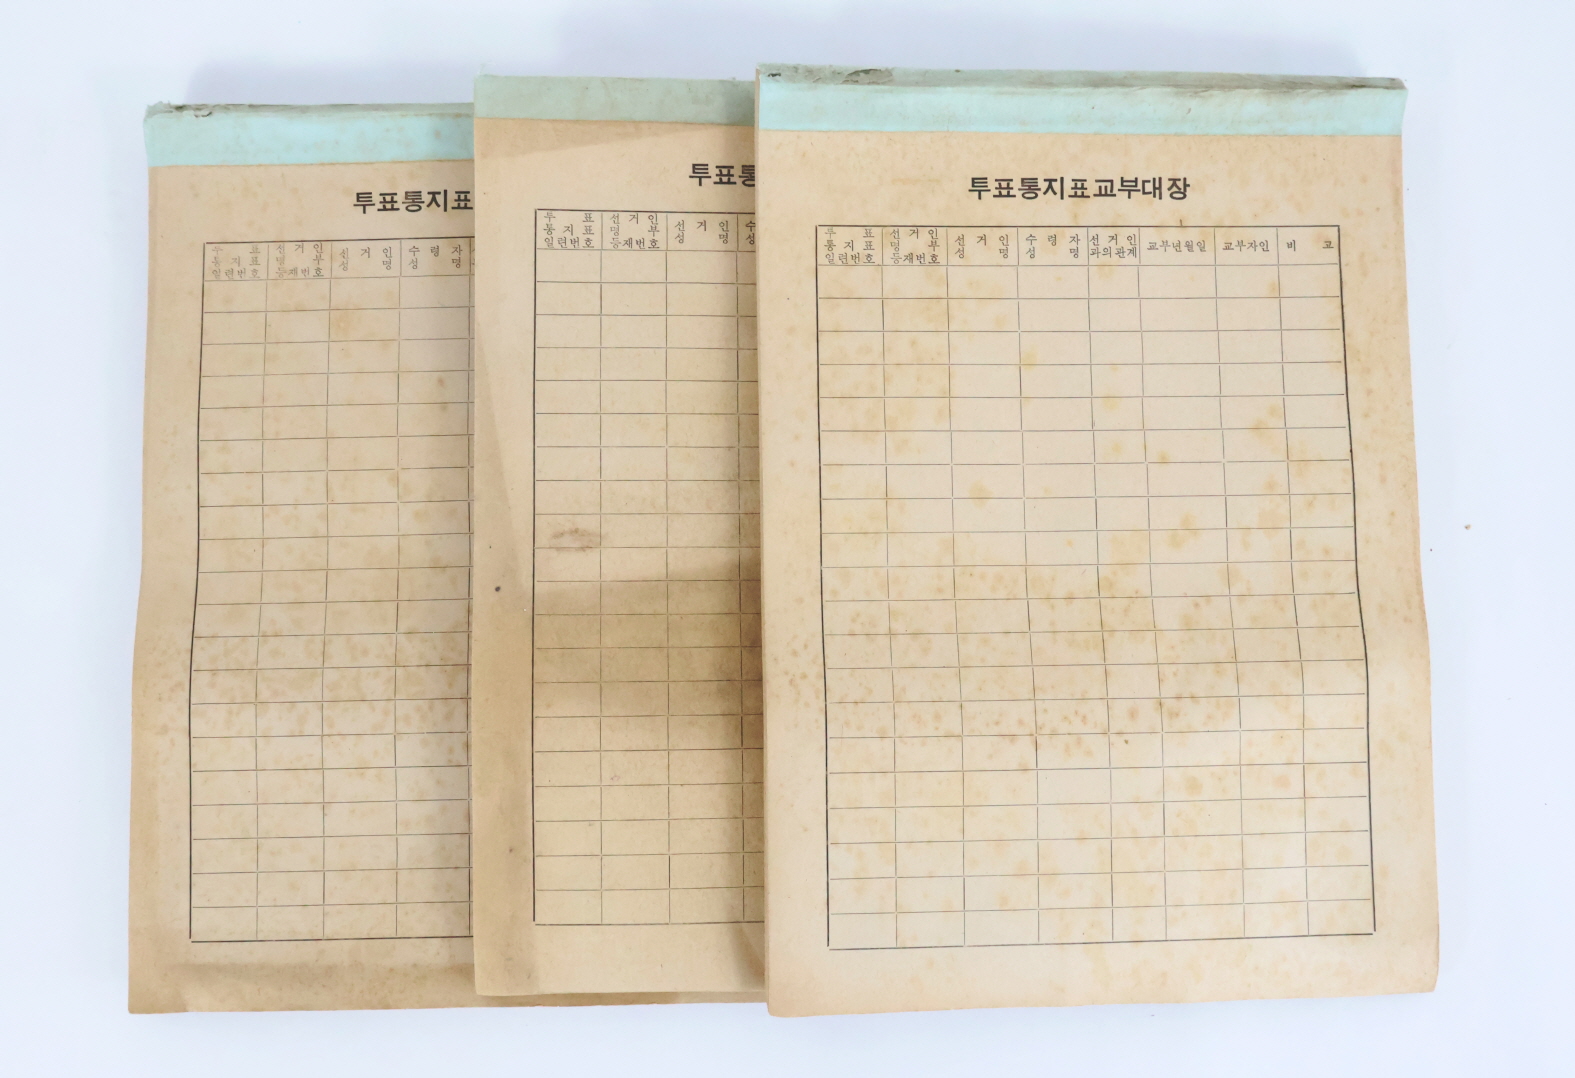 투표통지표
투 표 통 지 표 일련번호
선 거 인 명 부 등재번호
선 거 인 성 명
수 령 자 성 명
투표통
투 표 통 지 표 일련번호
선 거 인 명 부 등재번호
선 거 인 성 명
수 성
투표통지표교부대장
투 표 통 지 표 일련번호
선 거 인 명 부 등재번호
선 거 인 성 명
수 령 자 성 명
선 거 인 과의관계
교부년월일
교부자인
비 고